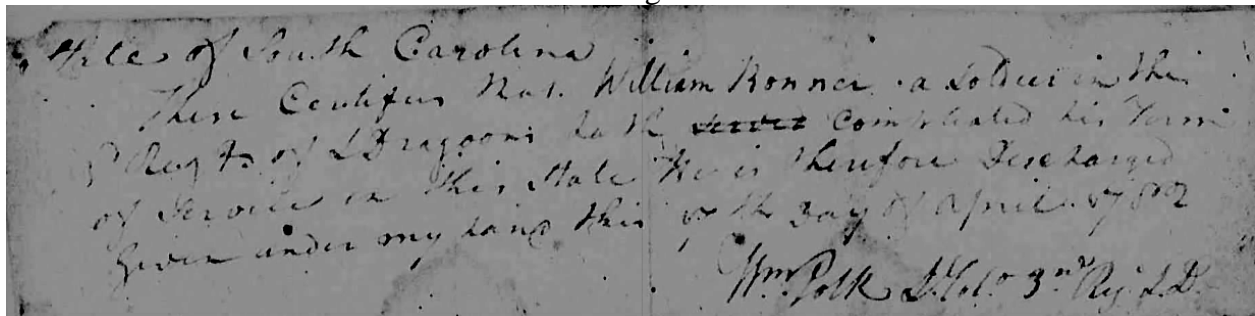 State of South Carolina
These Certifies that William Ronner a Soldier in the
3d Regt. of L Dragoons hath served Compleated his Term
of Service in this State He is therefore Discharged
Given under my hand this 17th Day of April 1782
Wm. Polk Lt. Colo. 3rd Reg. L.D.